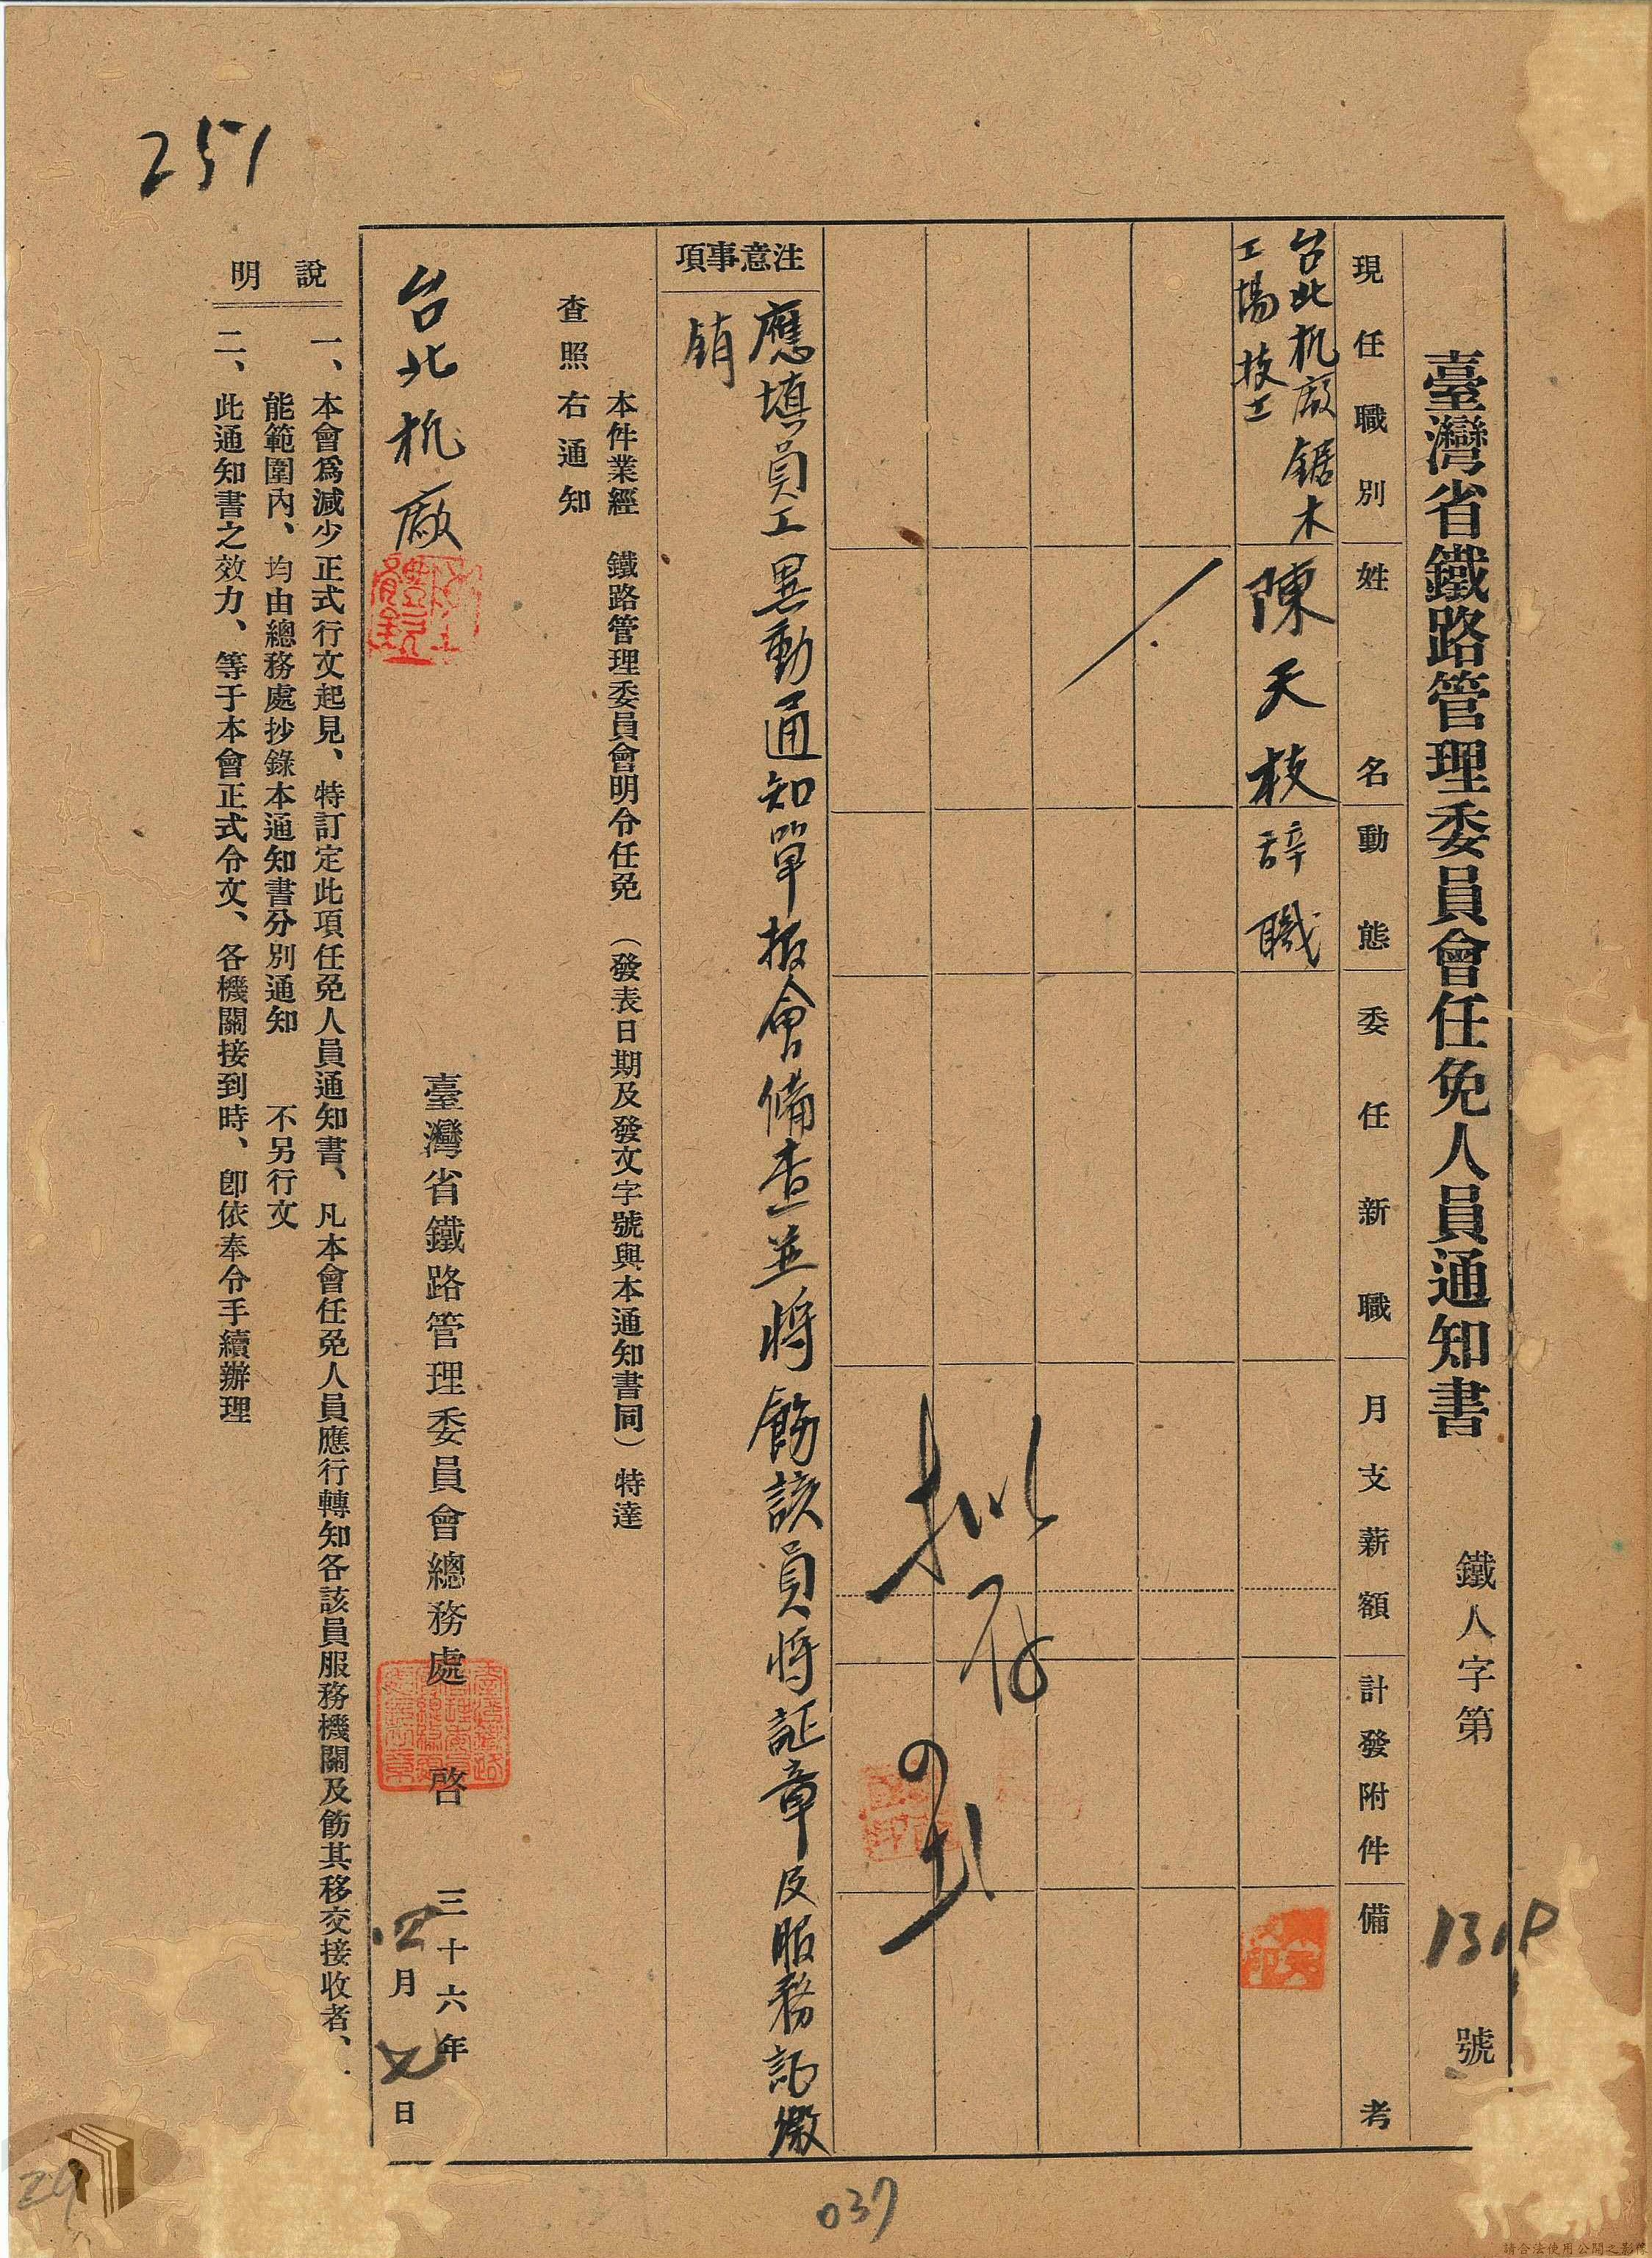 251
臺灣省鐵路管理委員會任免人員通知書 鐵人字第 號
現任職別 姓名 動態 委任新職 月支薪額 計發附件 備考
台北机廠鋸木
工場技工
陳天枝 辞職
拟存
注意事項
應填員工異動通知單报會備查並將飭該員将証章及服務証繳
銷
本件業經 鐵路管理委員會明令任免（發表日期及發文字號與本通知書同）特達
查照右通知
台北机廠
臺灣省鐵路管理委員會總務處 啓 三十六年
四月 日
說明
一、本會爲減少正式行文起見、特訂定此項任免人員通知書、凡本會任免人員應行轉知各該員服務機關及飭其移交接收者、
能範圍內、均由總務處抄錄本通知書分別通知 不另行文
二、此通知書之效力、等于本會正式令文、各機關接到時、卽依奉令手續辦理
037
29
請合法使用公開之影像